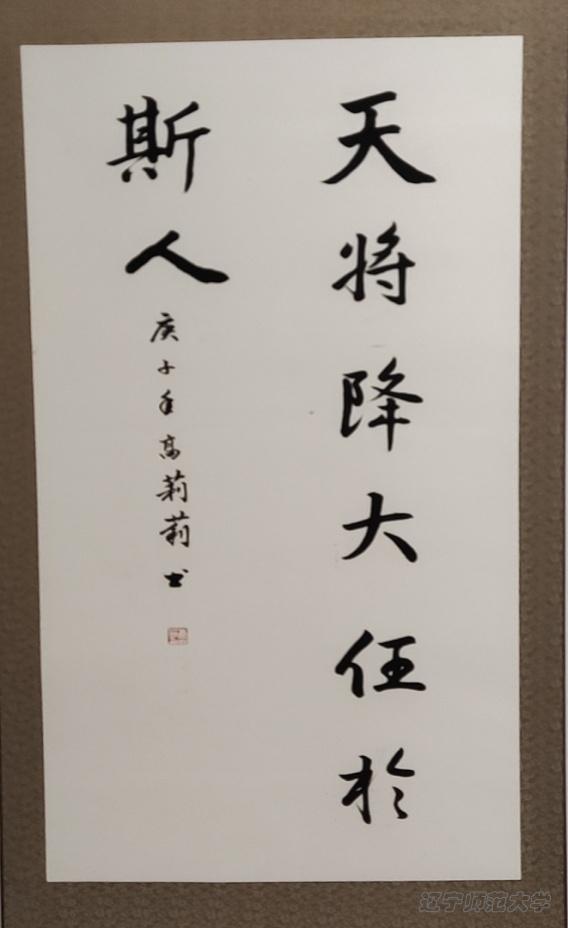 天将降大任於
斯人
庚子年高莉莉书
辽宁师范大学